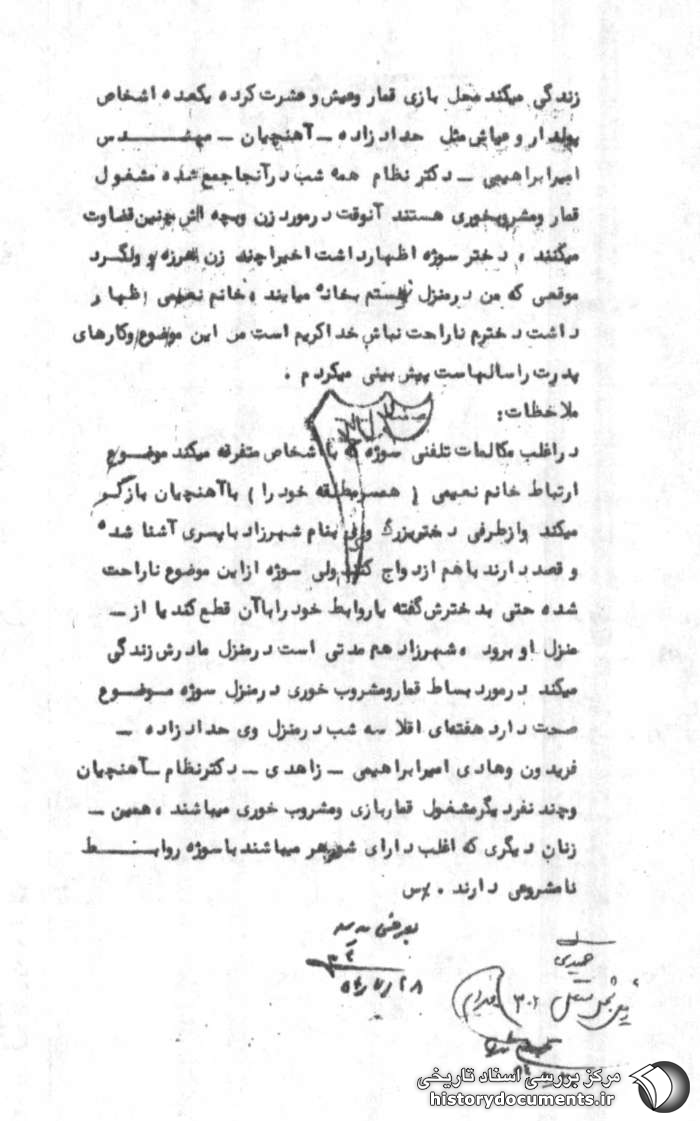 زندگی میکند محل بازی قمار وعیش وعشرت کرده یکعده اشخاص
پولدار وعیاش مثل حدادزاده ـ آهنچیان ـ مهنـــدس
امیرابراهیمی ـ دکترنظام همه شب درآنجاجمع شده مشغول
قمار ومشروبخوری هستند آنوقت درمورد زن وبچه اش چنین قضاوت
میکنند ، دختر سوژه اظهارداشت اخیراچند زن هرزه و ولگرد
موقعی که من درمنزل نیستم بخانه میایند ، خانم نعیمی اظهار
داشت دخترم ناراحت نباش خداکریم است من این موضوع وکارهای
پدرت راسالهاست پیش بینی میکردم .
ملاحظات:
دراغلب مکالمات تلفنی سوژه که با اشخاص متفرقه میکند موضـوع
ارتباط خانم نعیمی ( همسرمطلقه خود را ) باآهنچیان بازگـو
میکند وازطرفی دختربزرگ وی بنام شهرزاد باپسری آشنا شده
و قصد دارند باهم ازدواج کنند ولی سوژه ازاین موضوع ناراحت
شده حتی بدخترش گفته یاروابط خودراباآن قطع کند یا از ـ
منزل او برود ، شهرزاد هم مدتی است درمنزل مادرش زندگی
میکند درمورد بساط قمارومشروب خوری درمنزل سوژه مـوضـوع
صحت دارد هفته‌ای اقلا سه شب درمنزل وی حدادزاده ـ
فریدون وهادی امیرابراهیمی ـ زاهدی ـ دکترنظام ـ آهنچیان
وچند نفردیگرمشغول قماربازی ومشروب خوری میباشند ، همین ـ
زنان دیگری که اغلب دارای شوهر میباشند باسوژه روابـــط
نامشروعی دارند .
بعرض رسید
مرکز بررسی اسناد تاریخی
historydocuments.ir